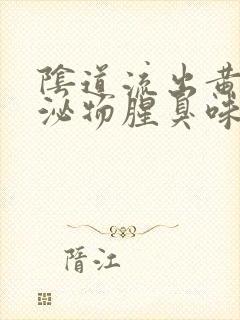 陰道流出黄
泌物腥臭味
晋江